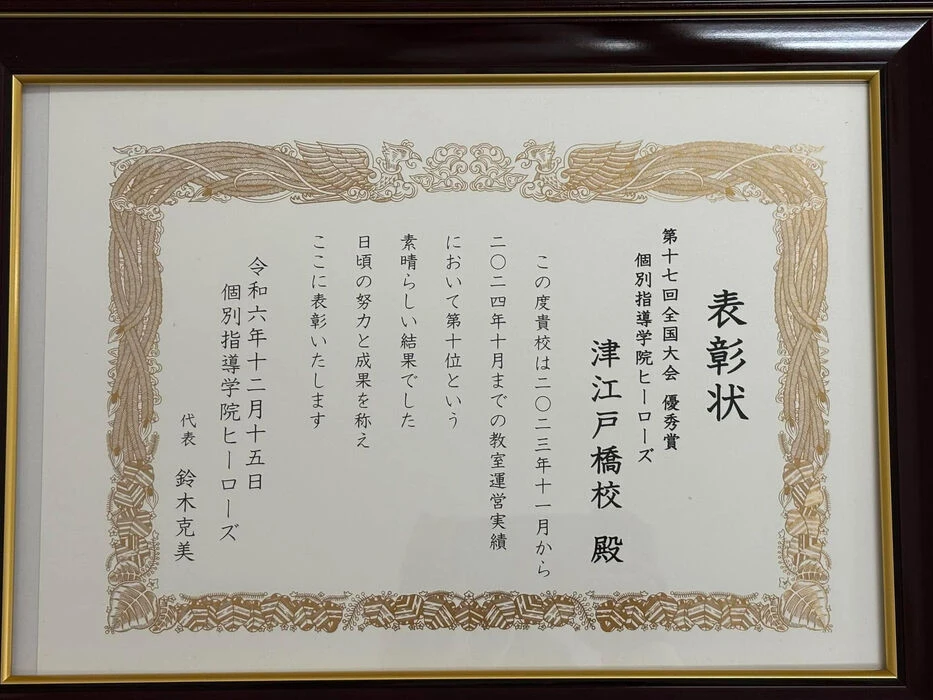 表彰状
第十七回全国大会 優秀賞
個別指導学院ヒーローズ
津江戸橋校 殿
この度貴校は二〇二三年十一月から
二〇二四年十月までの教室運営実績
において第十位という
素晴らしい結果でした
日頃の努力と成果を称え
ここに表彰いたします
令和六年十二月十五日
個別指導学院ヒーローズ
代表 鈴木克美